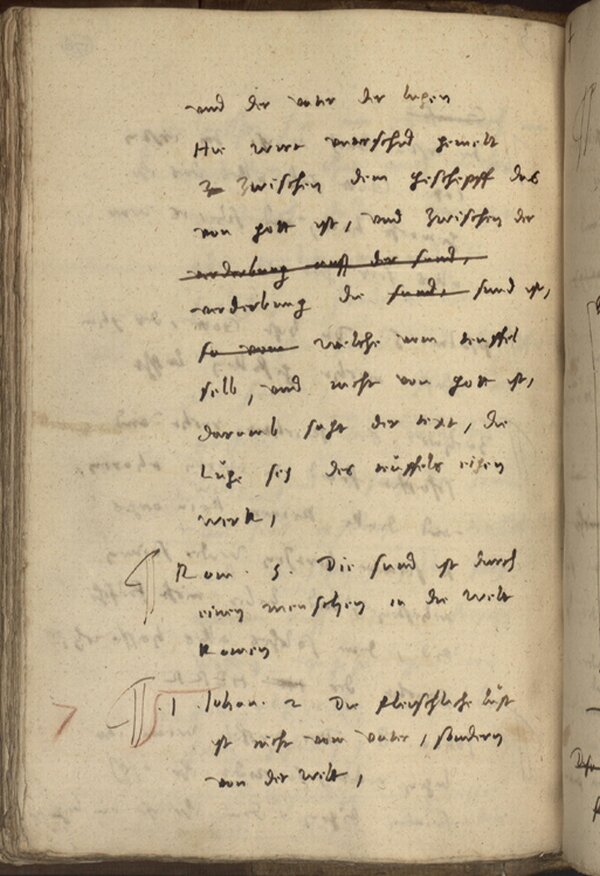 und der vater der lugen
Hie wirt unterschid gemelt
zwischen dem geschepff das
von gott ist, und zwischen der
verderbung auß der sund,
verderbung die sund, sund ist,
so vom welche vom teuffel
selb, und nicht von gott ist,
darumb sagt der text, die
Luge sey des teuffels eigen
werk,
¶ Rom. 5. Die sund ist durch
einen menschen in die welt
komen
¶ 1 Johan. 2 Die fleischliche lust
ist nicht vom vater, sondern
von der welt,